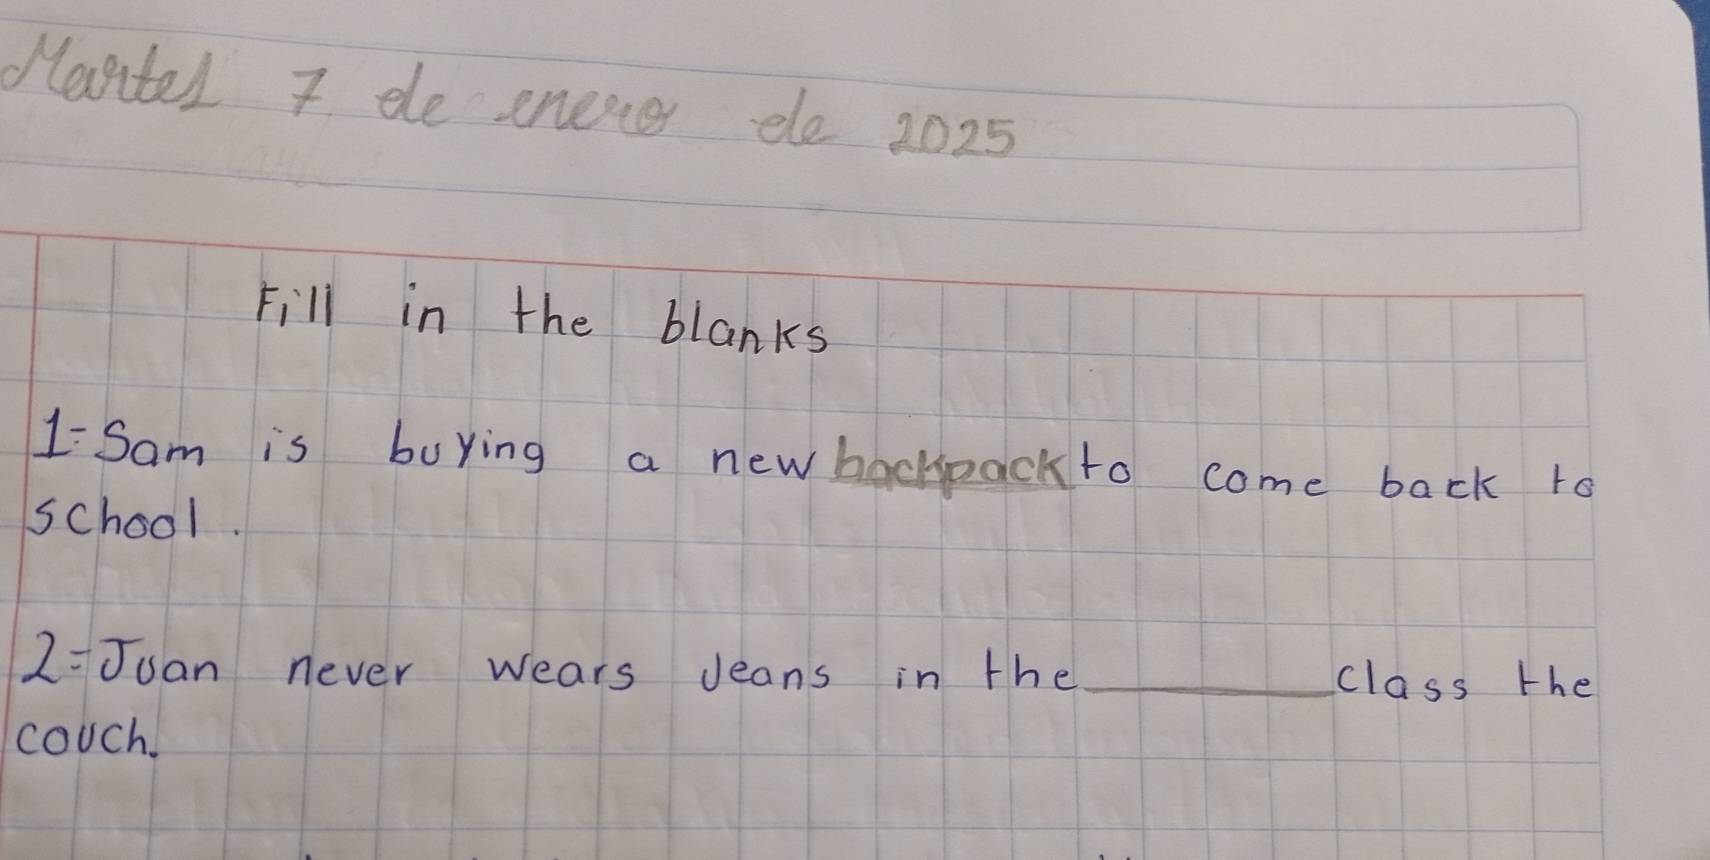 Martes 7 de enero de 2025
Fill in the blanks
1=Sam is buying a new backpack to come back to
school.
2=Juan never wears Jeans in the ________ class the
couch.